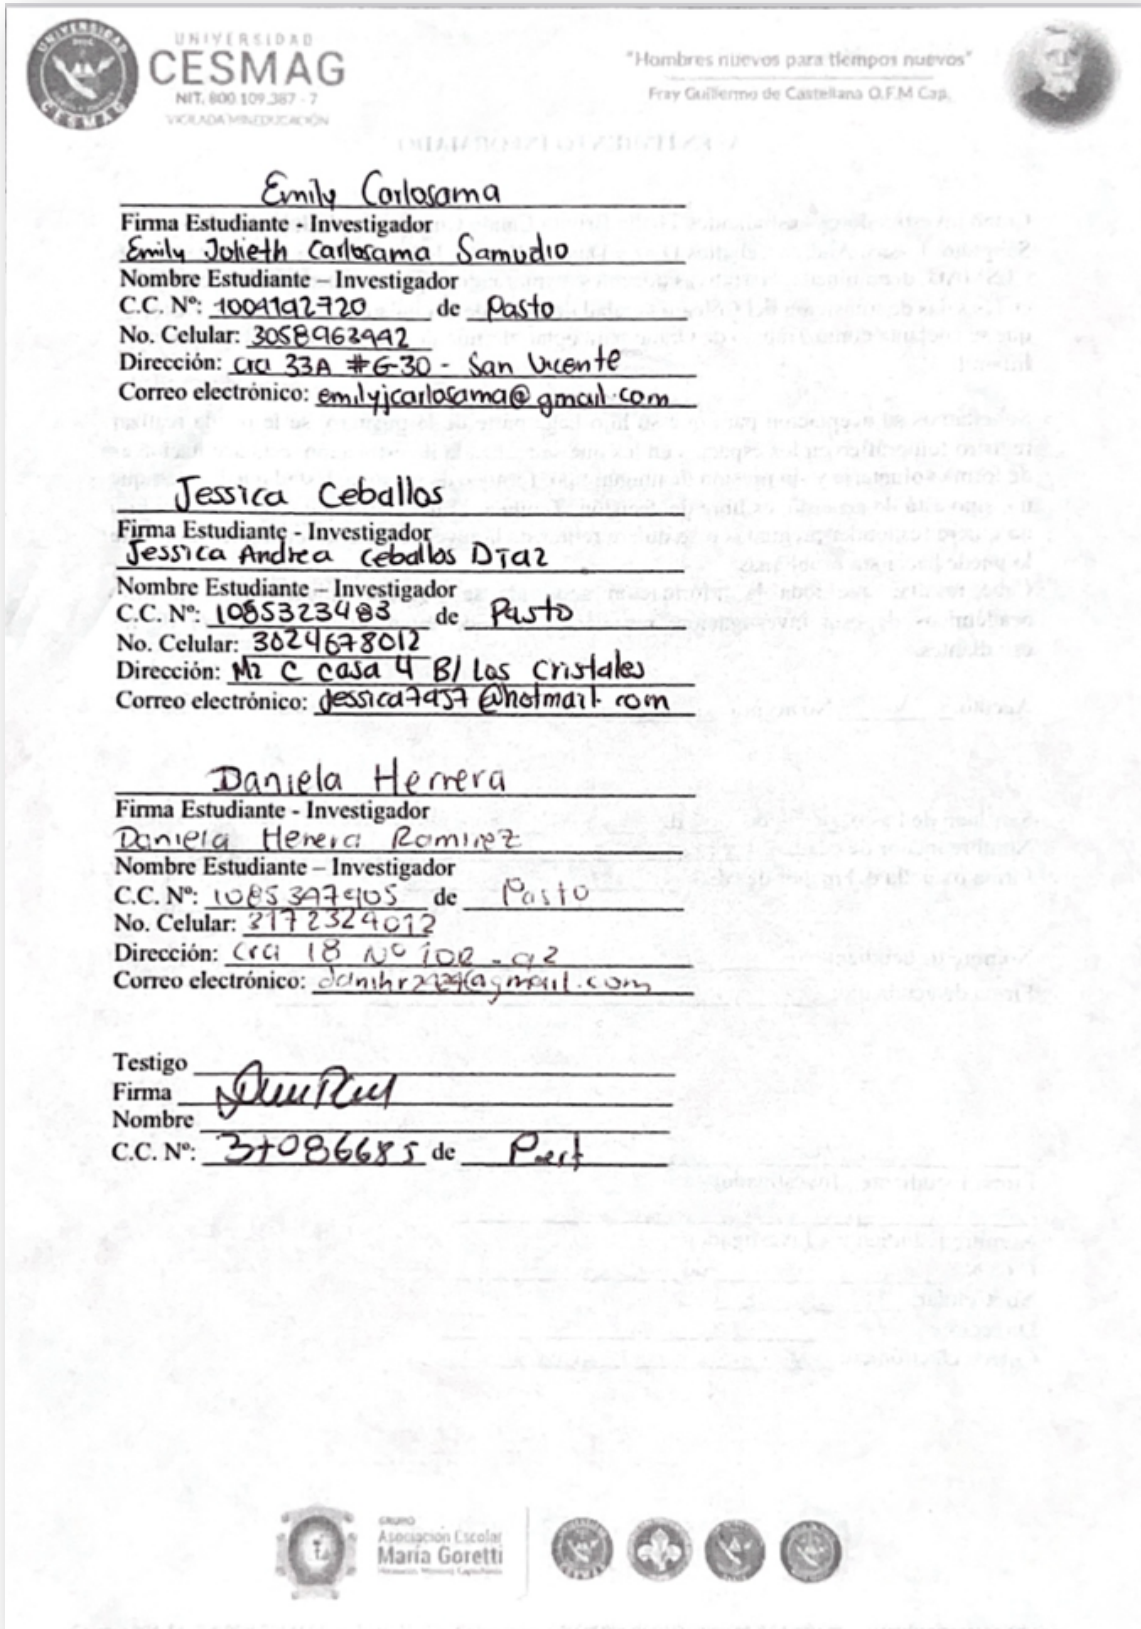 UNIVERSIDAD
CESMAG
NIT. 800.109.387 - 7
VIGILADA MINEDUCACIÓN
"Hombres nuevos para tiempos nuevos"
Fray Guillermo de Castellana O.F.M Cap.
Emily Carlosama
Firma Estudiante - Investigador
Emily Julieth Carlosama Samudio
Nombre Estudiante – Investigador
C.C. Nº: 1004192720 de Pasto
No. Celular: 3058963442
Dirección: cra 33A #6-30 - San Vicente
Correo electrónico: emilyjcarlosama@gmail.com
Jessica Ceballos
Firma Estudiante - Investigador
Jessica Andrea Ceballos Díaz
Nombre Estudiante – Investigador
C.C. Nº: 1085323483 de Pasto
No. Celular: 3024678012
Dirección: Mz C casa 4 B/ Los Cristales
Correo electrónico: jessica7957@hotmail.com
Daniela Herrera
Firma Estudiante - Investigador
Daniela Herrera Ramirez
Nombre Estudiante – Investigador
C.C. Nº: de Pasto
No. Celular: 3172329012
Dirección: cra 18 Nº
Correo electrónico:
Testigo
Firma
Nombre
C.C. Nº: 37086685 de
GRUPO
Asociación Escolar
María Goretti